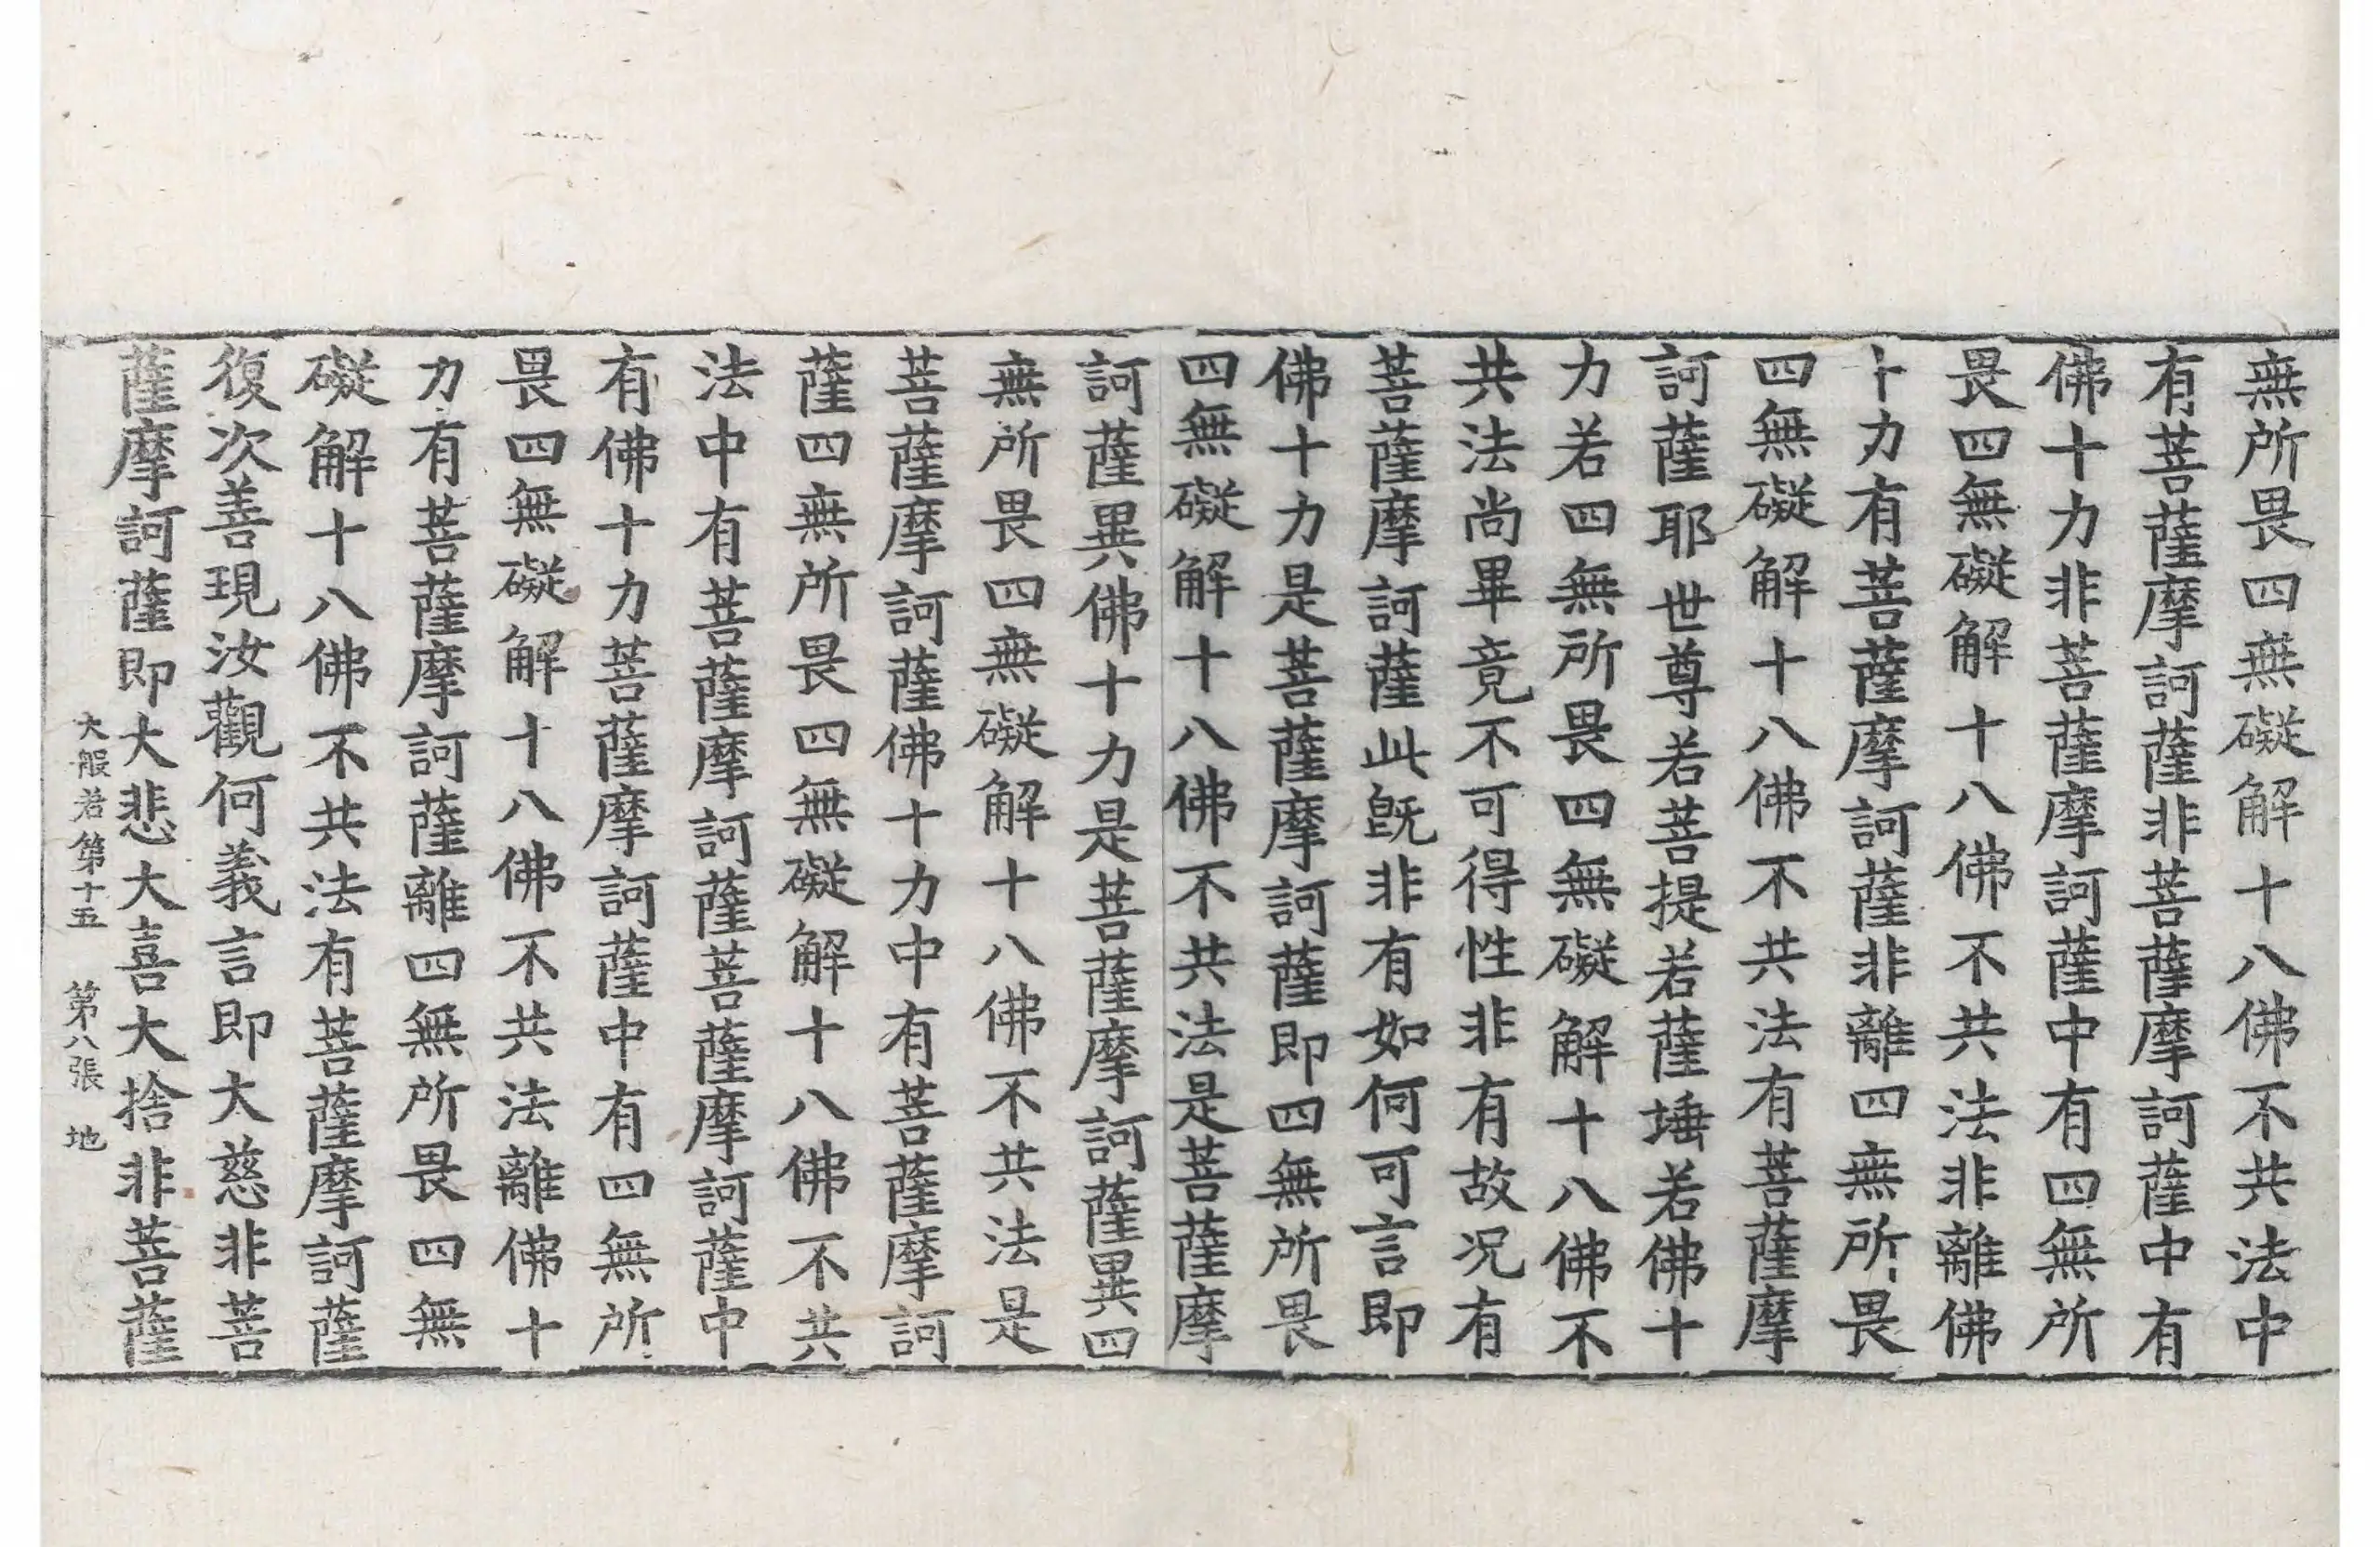 無所畏四無礙解十八佛不共法中
有菩薩摩訶薩非菩薩摩訶薩中有
佛十力非菩薩摩訶薩中有四無所
畏四無礙解十八佛不共法非離佛
十力有菩薩摩訶薩非離四無所畏
四無礙解十八佛不共法有菩薩摩
訶薩耶世尊若菩提若薩埵若佛十
力若四無所畏四無礙解十八佛不
共法尚畢竟不可得性非有故况有
菩薩摩訶薩此旣非有如何可言即
佛十力是菩薩摩訶薩即四無所畏
四無礙解十八佛不共法是菩薩摩
訶薩異佛十力是菩薩摩訶薩異四
無所畏四無礙解十八佛不共法是
菩薩摩訶薩佛十力中有菩薩摩訶
薩四無所畏四無礙解十八佛不共
法中有菩薩摩訶薩菩薩摩訶薩中
有佛十力菩薩摩訶薩中有四無所
畏四無礙解十八佛不共法離佛十
力有菩薩摩訶薩離四無所畏四無
礙解十八佛不共法有菩薩摩訶薩
復次善現汝觀何義言即大慈非菩
薩摩訶薩即大悲大喜大捨非菩薩
大般若第十五 第八張 地